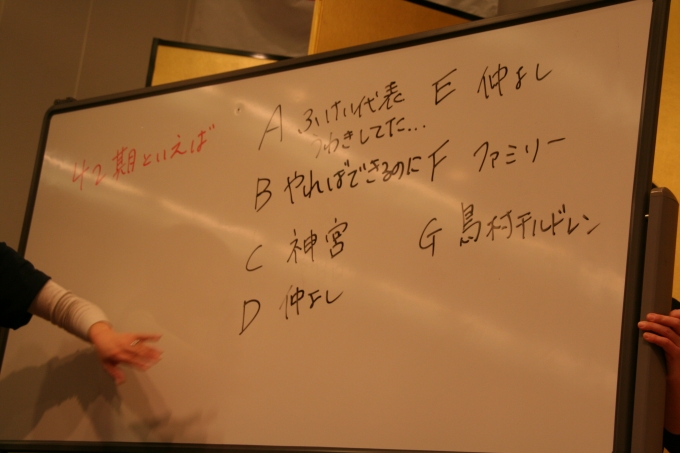 42期といえば
A ふけい代表
うわきしてた...
B やればできるのに
C 神宮
D 仲よし
E 仲よし
F ファミリー
G 島村チルドレン